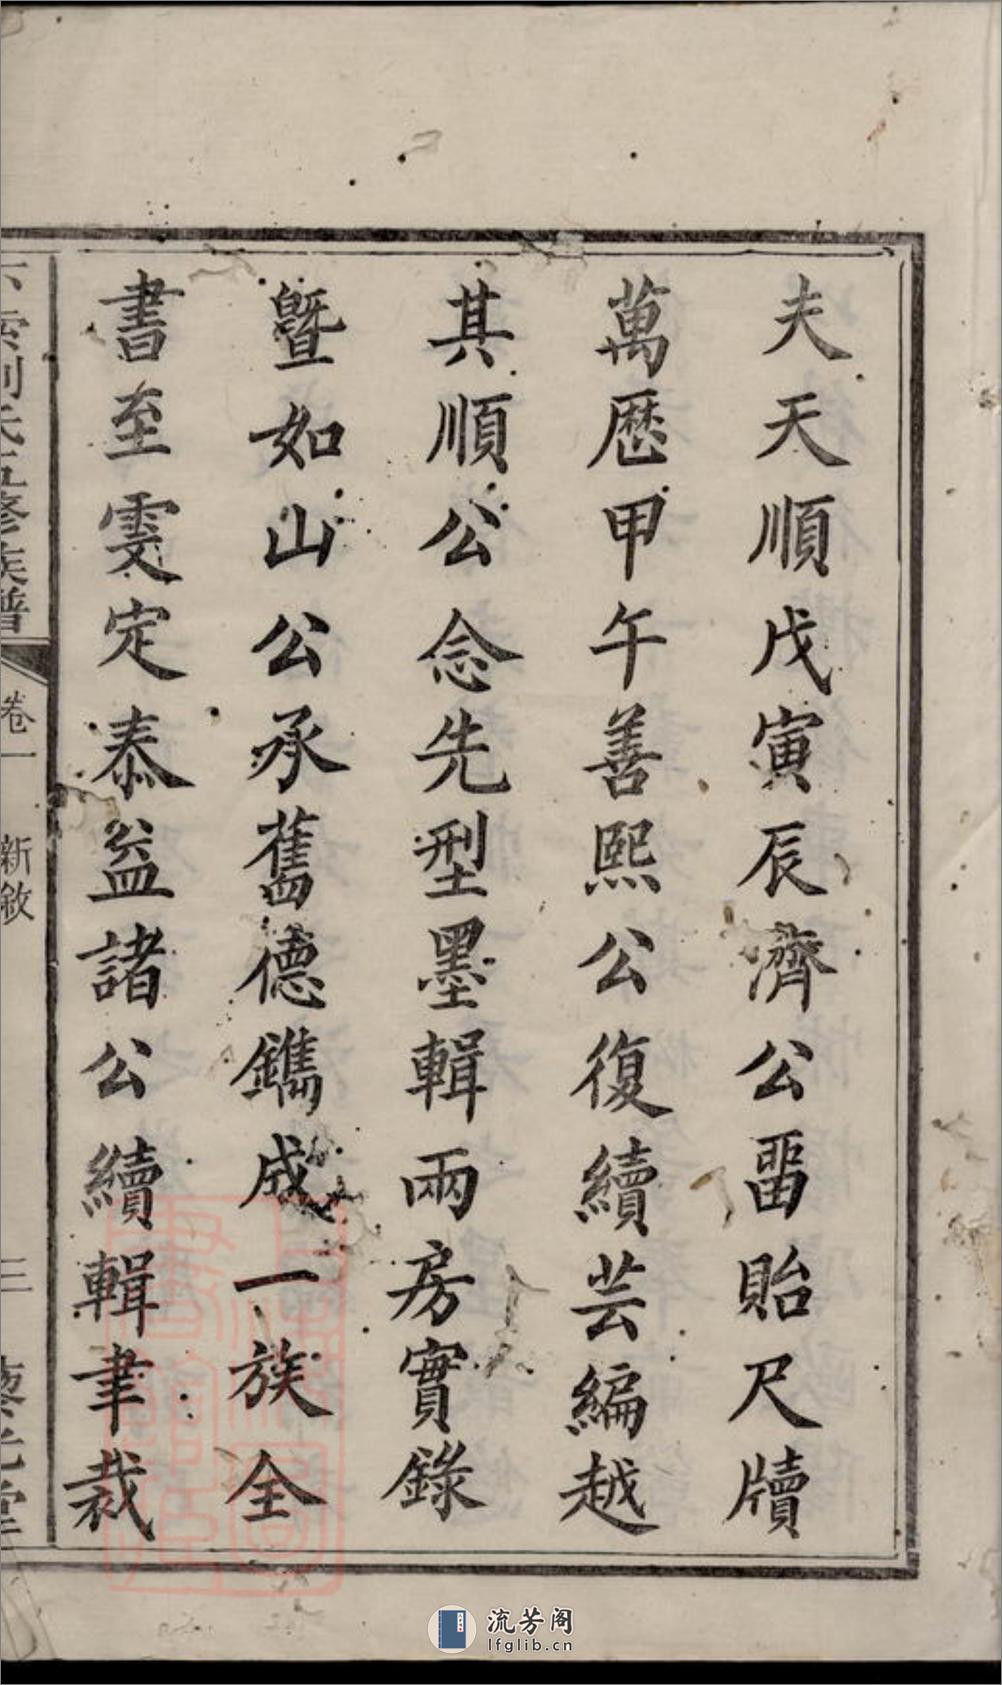 夫天順戊寅辰濟公畱貽尺牘
萬歷甲午善熙公復續芸編越
其順公念先型墨輯兩房實錄
暨如山公承舊德鐫成一族全
書至雯定泰益諸公續輯聿裁
劉氏五修族譜
卷一 新敘
三
流芳阁
lfglib.cn